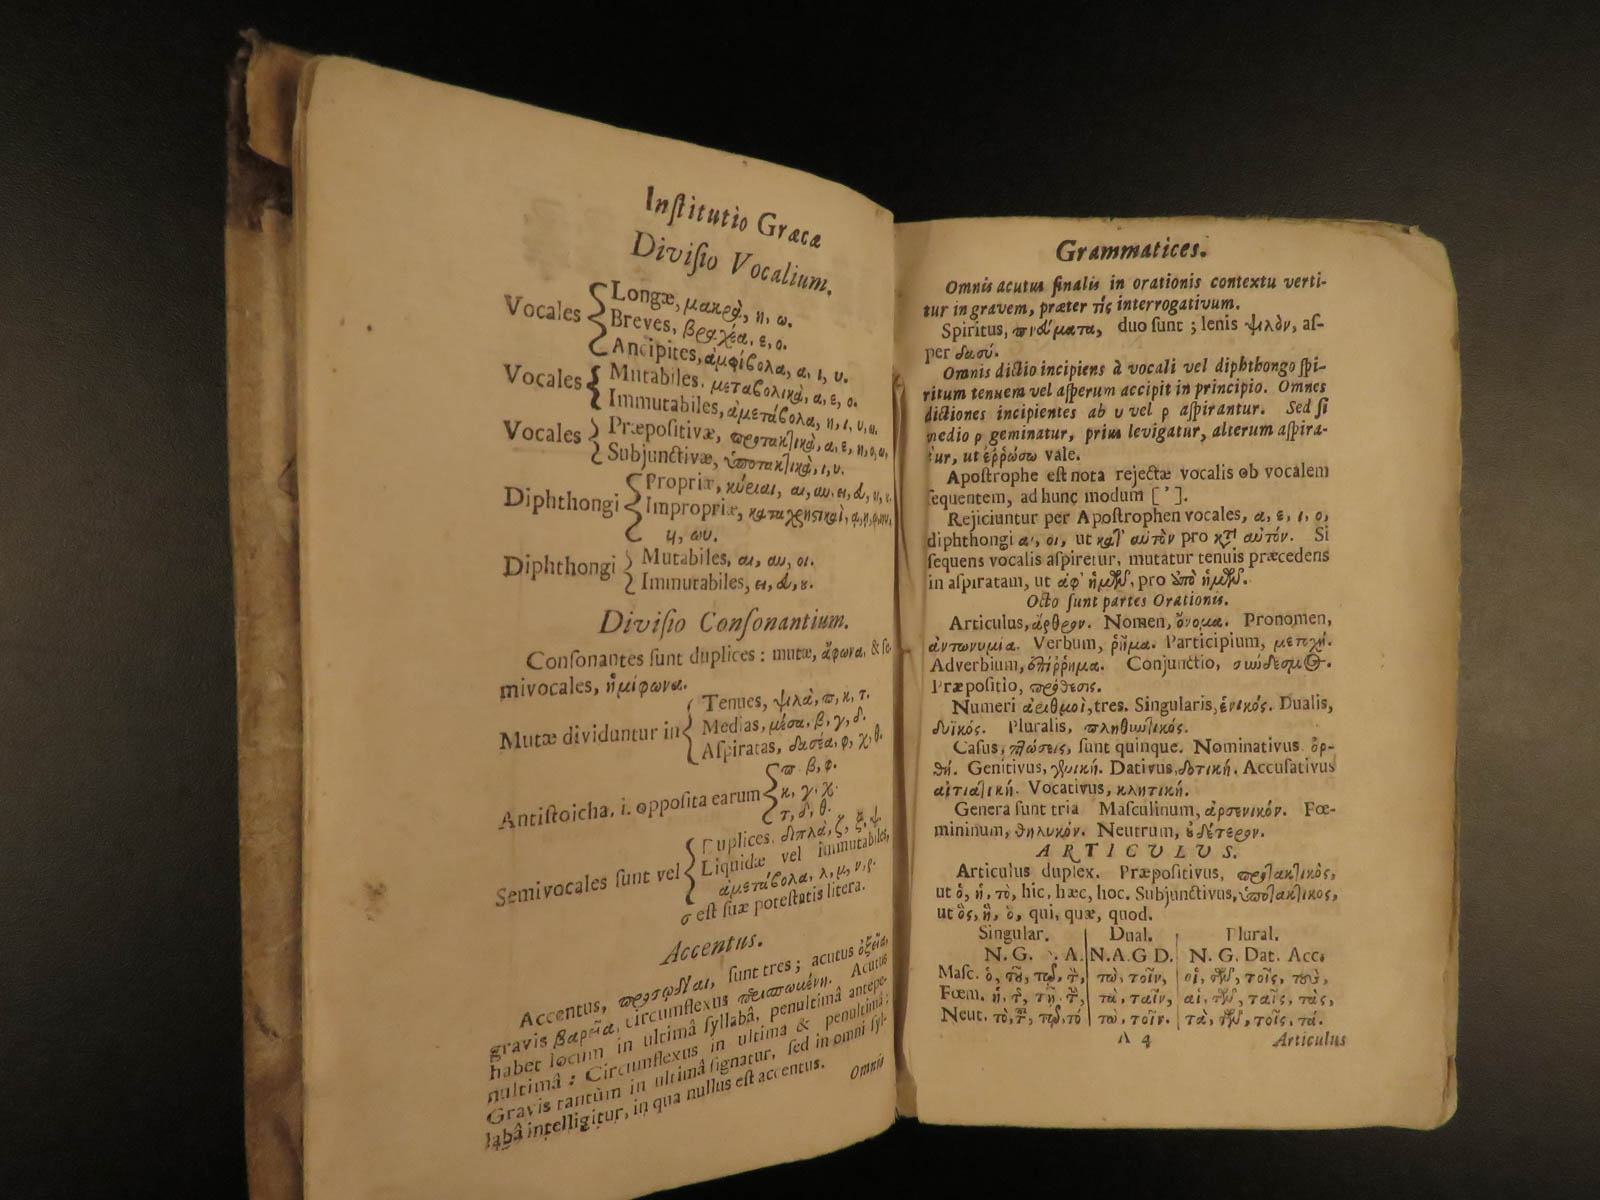 Inſtitutio Græcæ
Diviſio Vocalium.
Vocales { Longæ, μακρὰ, η, ω.
Breves, βραχέα, ε, ο.
Ancipites, ἀμφίβολα, α, ι, υ.
Vocales { Mutabiles, μεταβολικὰ, α, ε, ο.
Immutabiles, ἀμετάβολα, η, ι, υ, ω.
Vocales { Præpoſitivæ, προτακτικὰ, α, ε, η, ο, ω,
Subjunctivæ, ὑποτακτικὰ, ι, υ.
Diphthongi { Propriæ, κύριαι, αι, αυ, ει, ευ, οι, ου.
Impropriæ, καταχρηστικαὶ, ᾳ, ῃ, ῳ, ηυ,
υι, ωυ.
Diphthongi { Mutabiles, αι, αυ, οι.
Immutabiles, ει, ευ, ου.
Diviſio Conſonantium.
Conſonantes ſunt duplices: mutæ, ἄφωνα, & ſe-
mivocales, ἡμίφωνα.
Mutæ dividuntur in { Tenues, ψιλὰ, π, κ, τ.
Medias, μέσα, β, γ, δ.
Aſpiratas, δασέα, φ, χ, θ.
Antiſtoicha, i. oppoſita earum { π, β, φ.
κ, γ, χ.
τ, δ, θ.
Semivocales ſunt vel { Duplices, διπλὰ, ζ, ξ, ψ.
Liquidæ vel immutabiles,
ἀμετάβολα, λ, μ, ν, ρ.
σ eſt ſuæ poteſtatis litera.
Accentus.
Accentus, προσῳδίαι, ſunt tres; acutus ὀξεῖα,
gravis βαρεῖα, circumflexus περισπωμένη. Acutus
habet locum in ultimâ ſyllabâ, penultimâ antepe-
nultimâ: Circumflexus in ultima & penultimâ:
Gravis tantùm in ultimâ ſignatur, ſed in omni ſyl-
labâ intelligitur, in qua nullus eſt accentus.
Omnis
Grammatices.
Omnis acutus finalis in orationis contextu verti-
tur in gravem, præter τίς interrogativum.
Spiritus, πνεύματα, duo ſunt; lenis ψιλὸν, aſ-
per δασύ.
Omnis dictio incipiens à vocali vel diphthongo ſpi-
ritum tenuem vel aſperum accipit in principio. Omnes
dictiones incipientes ab υ vel ρ aſpirantur. Sed ſi
medio ρ geminatur, prius levigatur, alterum aſpira-
tur, ut ἐῤῥώσω vale.
Apoſtrophe eſt nota rejectæ vocalis ob vocalem
ſequentem, ad hunc modum [ʼ].
Rejiciuntur per Apoſtrophen vocales, α, ε, ι, ο,
diphthongi αι, οι, ut κατ᾽ αὐτὸν pro κατὰ αὐτόν. Si
ſequens vocalis aſpiretur, mutatur tenuis præcedens
in aſpiratam, ut ἀφ᾽ ἡμῶν, pro ἀπὸ ἡμῶν.
Octo ſunt partes Orationis.
Articulus, ἄρθρον. Nomen, ὄνομα. Pronomen,
ἀντωνυμία. Verbum, ῥῆμα. Participium, μετοχή.
Adverbium, ἐπίῤῥημα. Conjunctio, σύνδεσμος.
Præpoſitio, πρόθεσις.
Numeri ἀριθμοὶ, tres. Singularis, ἑνικός. Dualis,
δυϊκός. Pluralis, πληθυντικός.
Caſus, πτώσεις, ſunt quinque. Nominativus ὀρ-
θή. Genitivus, γενική. Dativus, δοτική. Accuſativus
αἰτιατική. Vocativus, κλητική.
Genera ſunt tria Maſculinum, ἀρσενικόν. Fœ-
mininum, θηλυκόν. Neutrum, οὐδέτερον.
ARTICULUS.
Articulus duplex. Præpoſitivus, προτακτικὸς,
ut ὁ, ἡ, τὸ, hic, hæc, hoc. Subjunctivus, ὑποτακτικος,
ut ὃς, ἣ, ὃ, qui, quæ, quod.
Singular. Dual. Plural.
N. G. A. N. A G D. N. G. Dat. Acc.
Maſc. ὁ, τοῦ, τῷ, τὸν, τὼ, τοῖν, οἱ, τῶν, τοῖς, τοὺς,
Fœm. ἡ, τῆς, τῇ, τὴν, τὰ, ταῖν, αἱ, τῶν, ταῖς, τὰς,
Neut. τὸ, τοῦ, τῷ, τό τὼ, τοῖν. τὰ, τῶν, τοῖς, τά.
A 4 Articulus